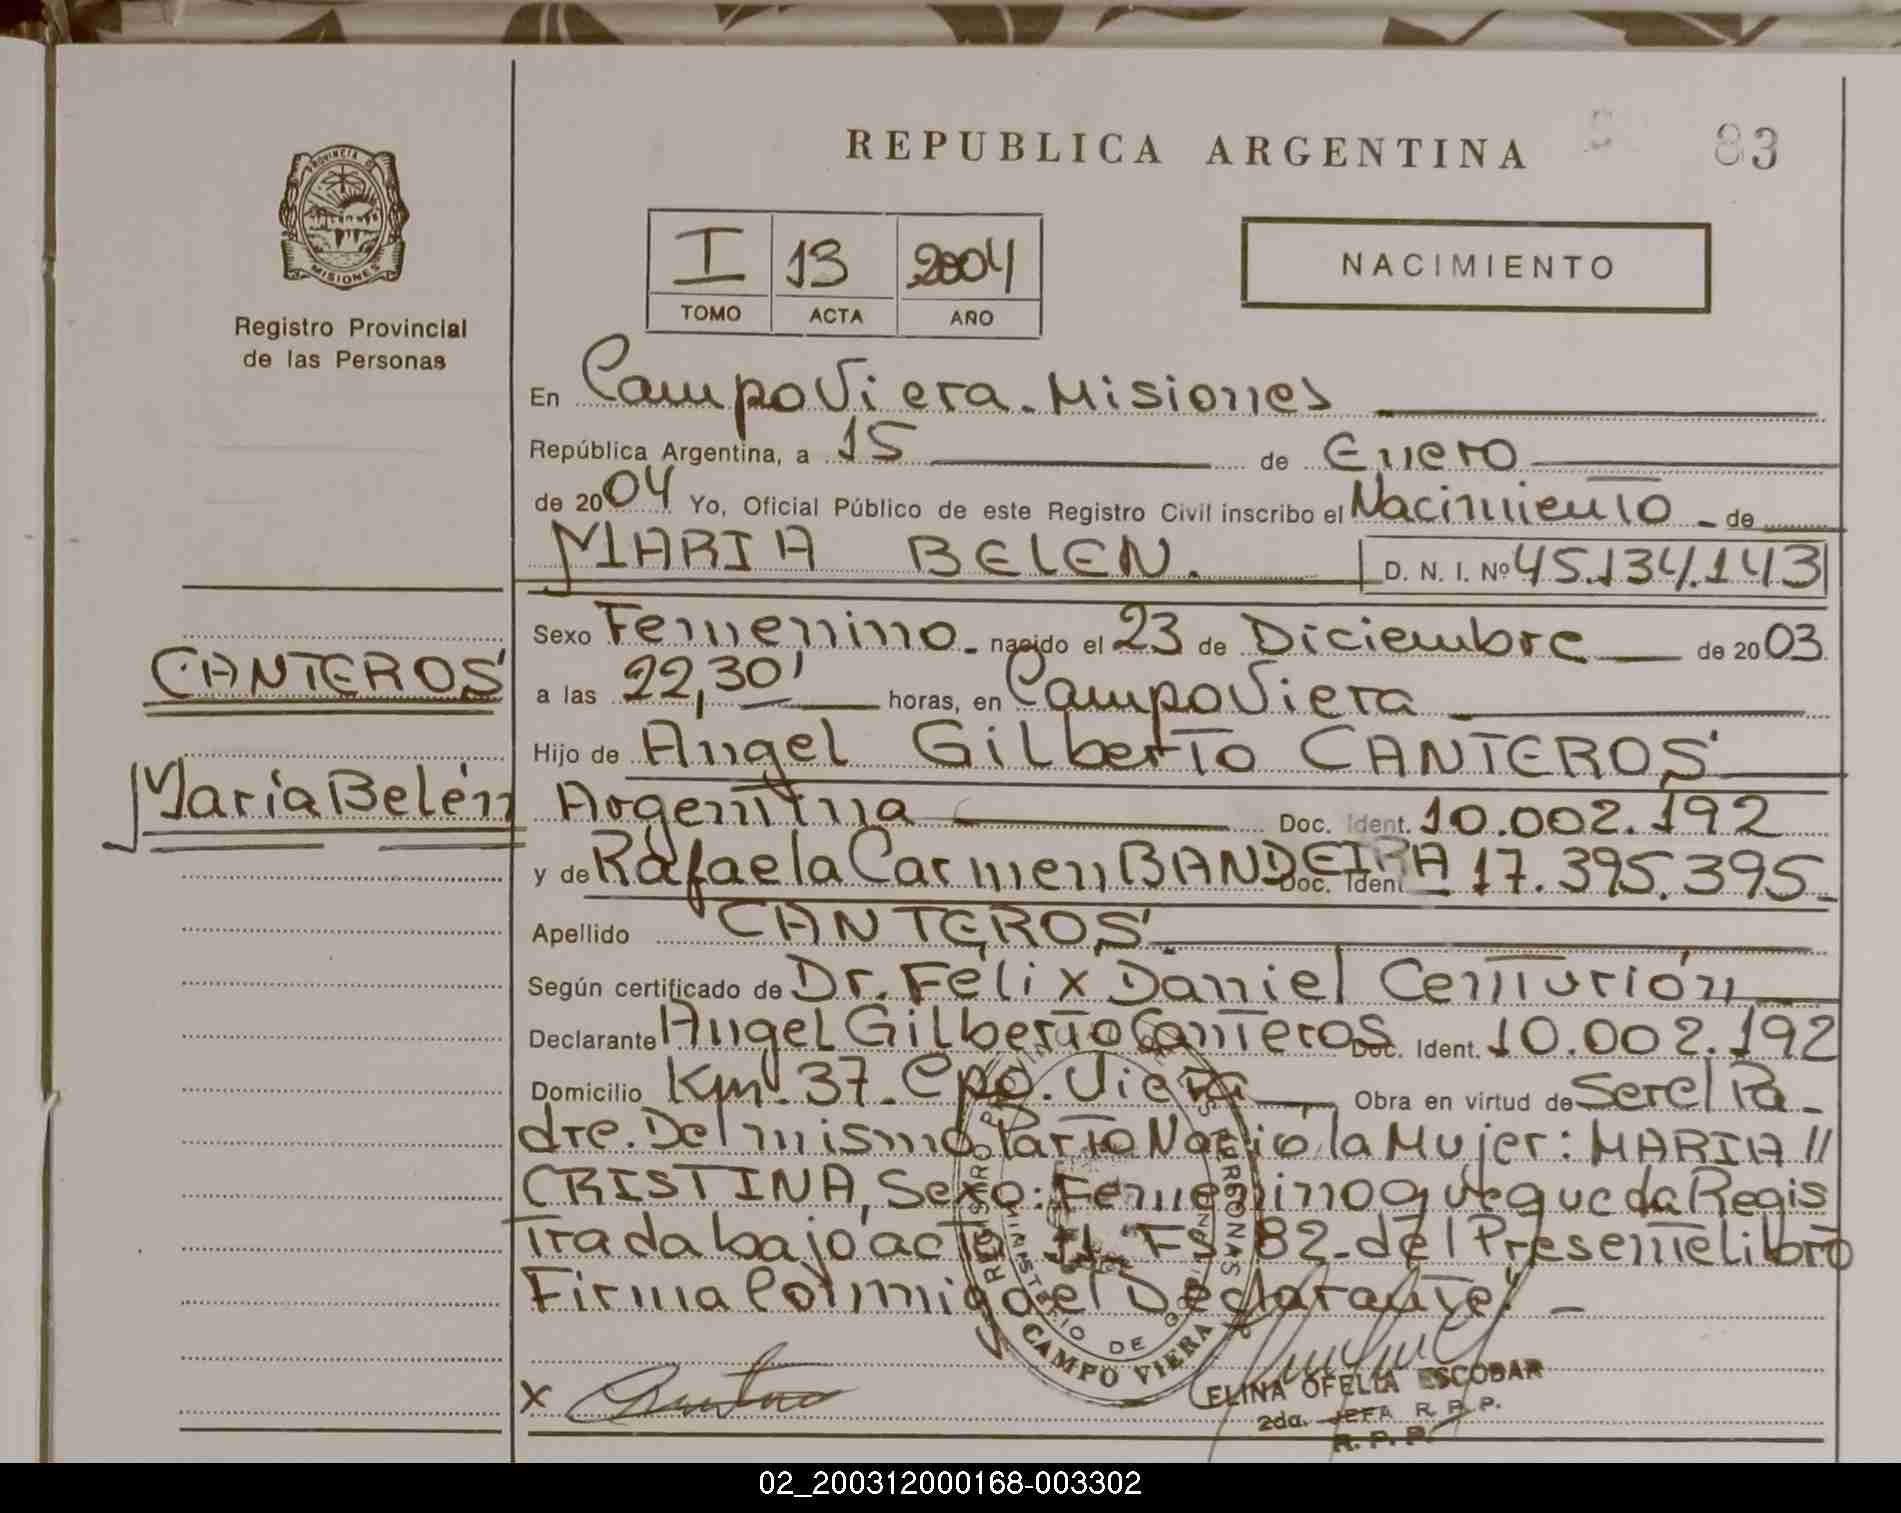 REPUBLICA ARGENTINA
83
PROVINCIA DE
MISIONES
Registro Provincial
de las Personas
I 13 2004
TOMO ACTA AÑO
NACIMIENTO
En Campo Viera. Misiones
República Argentina, a 15 de Enero
de 2004 Yo, Oficial Público de este Registro Civil inscribo el Nacimiento - de
MARIA BELEN. D. N. I. Nº 45.134.143
Sexo Femenino - nacido el 23 de Diciembre de 2003
CANTEROS
a las 22,30' horas, en Campo Viera
Hijo de Angel Gilberto CANTEROS
María Belén
Argentina Doc. Ident. 10.002.192
y de Rafaela Carmen BANDEIRA Doc. Ident 17.395.395
Apellido CANTEROS
Según certificado de Dr. Félix Daniel Centurión
Declarante Angel Gilberto Canteros Doc. Ident. 10.002.192
Domicilio Km. 37. Cpo. Viera Obra en virtud de Ser el Pa-
dre. Del mismo Parto Nació la Mujer: MARIA //
CRISTINA, Sexo: Femenino que queda Regis
Trada bajo acta Fs 82 - del Presente libro
Firma Conmigo el Declarante." -
REGISTRO PERSONAS
MINISTERIO DE
CAMPO VIERA
X
ELINA OFELIA ESCOBAR
2da. JEFA R. P. P.
R. P. P.
02_200312000168-003302